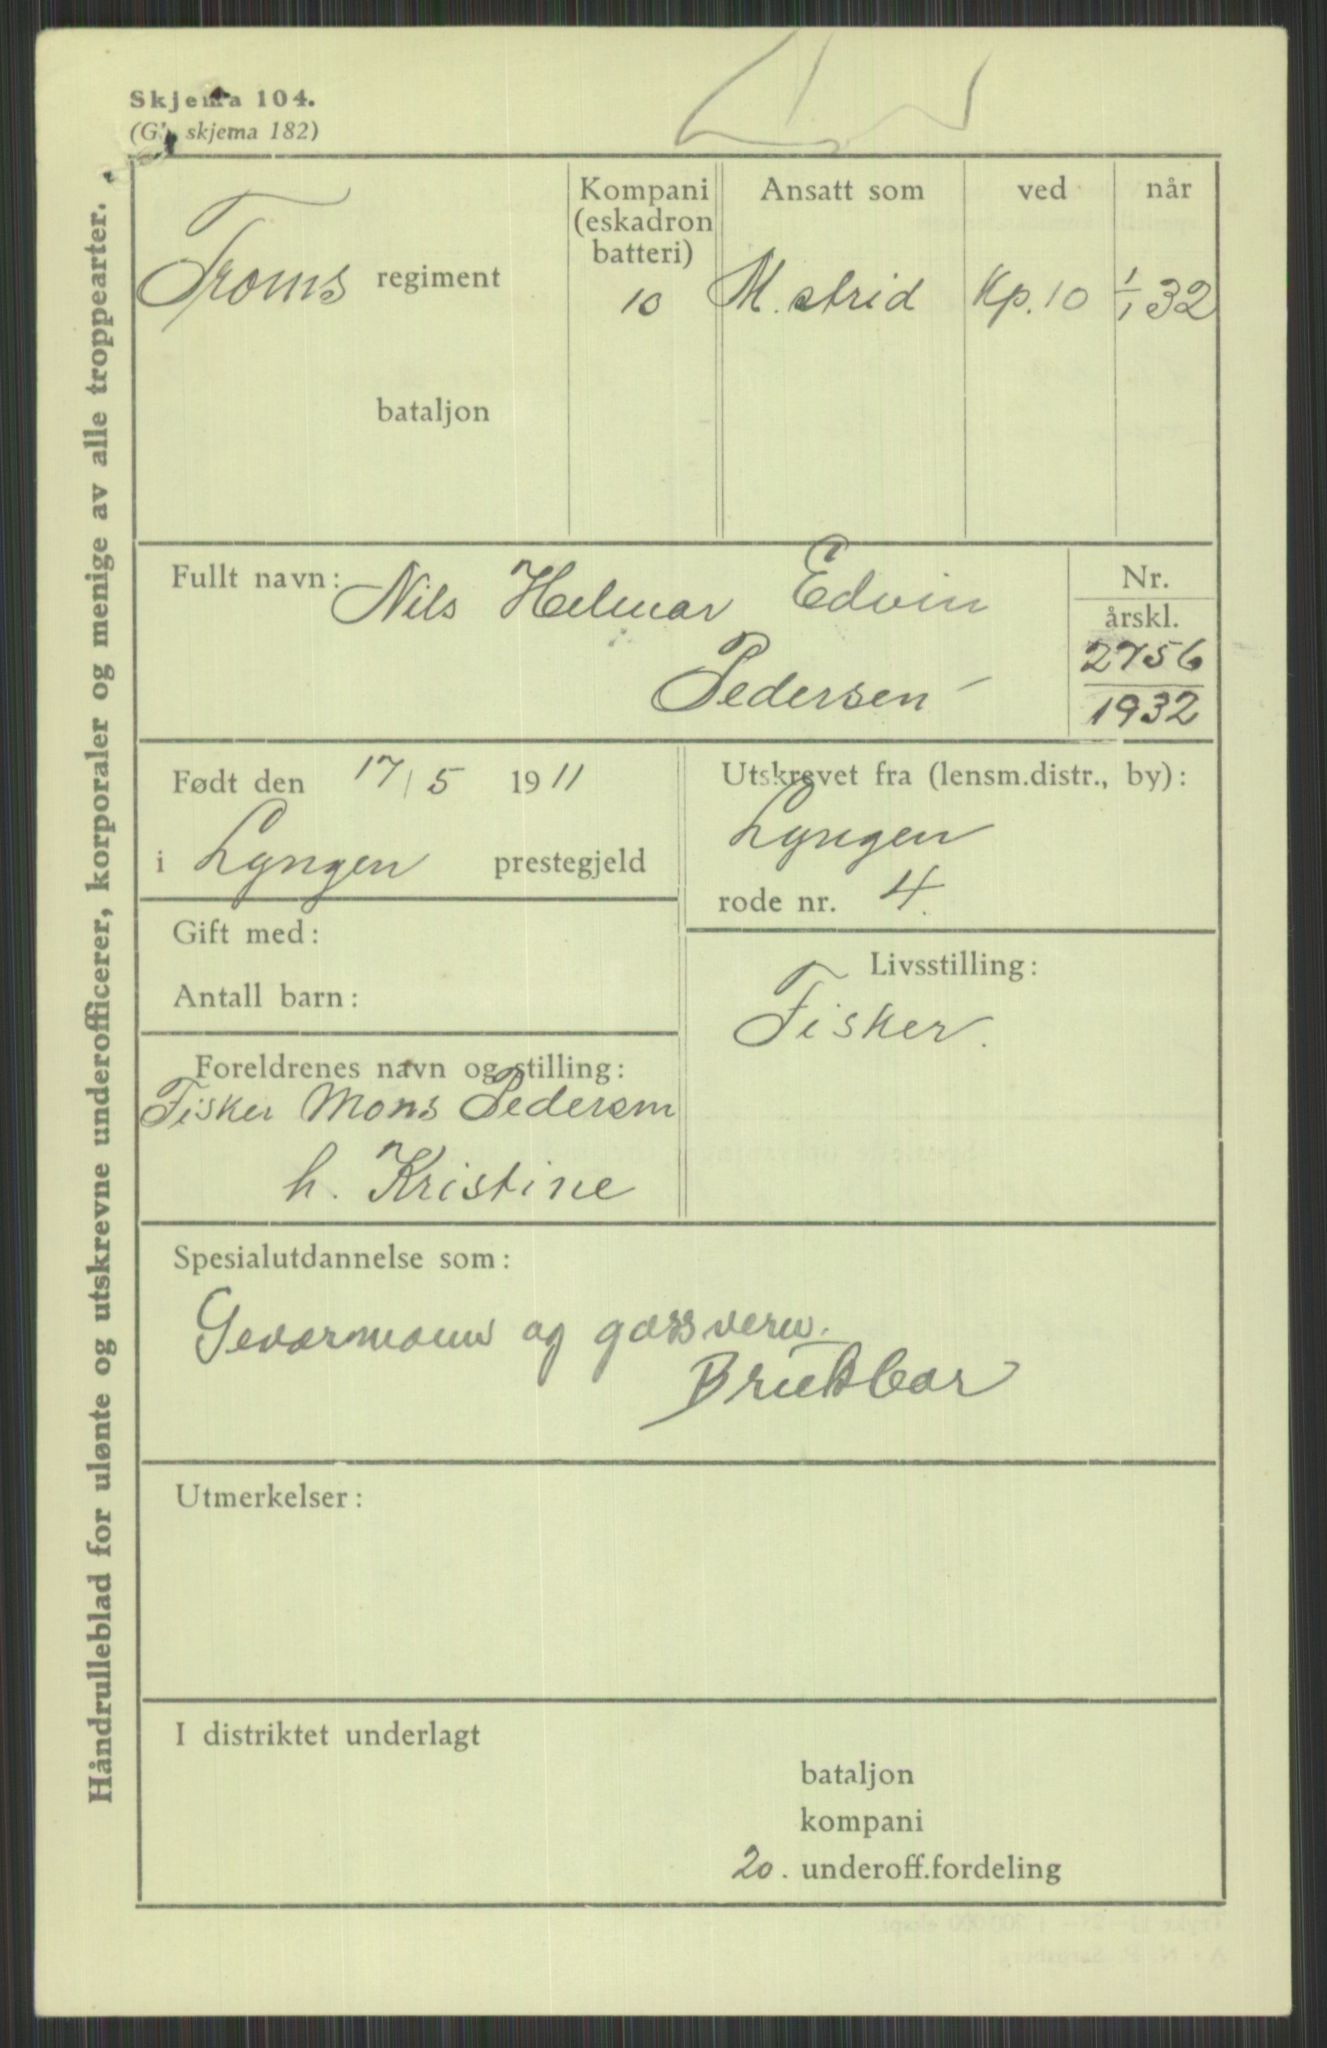 Skjema 104.
(Gl. skjema 182)
Håndrulleblad for ulønte og utskrevne underofficerer, korporaler og menige av alle troppearter.
Troms regiment
bataljon
Kompani
(eskadron
batteri)
10
Ansatt som
M. strid
ved
Kp. 10
når
1/1 32
Fullt navn: Nils Helmar Edvin
Pedersen
Nr.
årskl.
2756
1932
Født den 17/5 1911
i Lyngen prestegjeld
Utskrevet fra (lensm.distr., by):
Lyngen
rode nr. 4.
Gift med:
Antall barn:
Livsstilling:
Fisker.
Foreldrenes navn og stilling:
Fisker Mons Pedersen
h. Kristine
Spesialutdannelse som:
Geværmann og gassvern.
Brukbar
Utmerkelser:
I distriktet underlagt
bataljon
kompani
20. underoff.fordeling